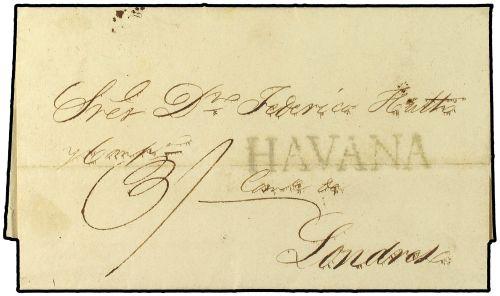 Sres Dn Federico Huth
y Compa HAVANA
3/
Londres